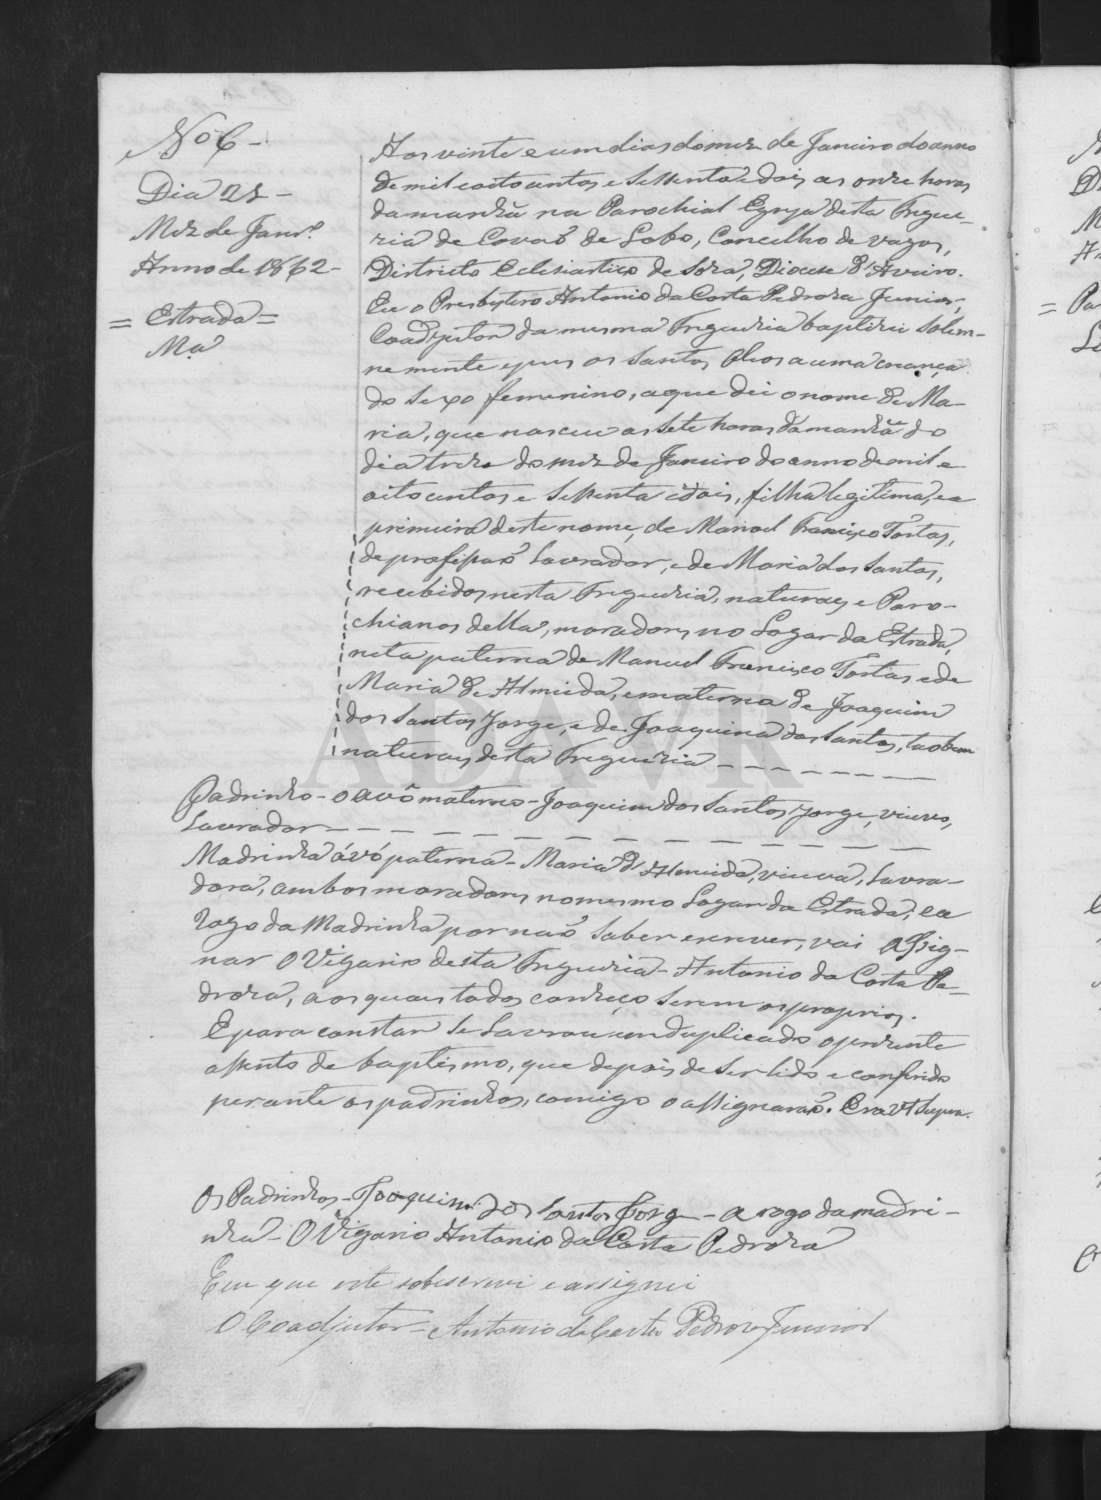 Nº 6-
Dia 21-
Mez de Janrº
Anno de 1862-
= Estrada =
Mª
Aos vinte e um dias do mez de Janeiro do anno
de mil e oito centos e sessenta e dois, as onze horas
da manhã na Parochial Egreja desta Fregue-
ria de Covaõ de Lobo, Concelho de Vagos,
Districto Eclesiastico de Soza, Diocese d'Aveiro.
Eu o Presbytero Antonio da Costa Pedroza Junior,
Coadjutor da mesma Freguezia baptizei Solem-
nemente e pus os Santos Oleos a uma criança
do sexo femenino, a que dei o nome de Ma-
ria, que nasceu as sete horas da manhã do
dia treze do mez de Janeiro do anno de mil e
oito centos e sessenta e dois, filha legitima, e a
primeira deste nome, de Manoel Francisco Tortas,
de profissaõ Lavrador, e de Maria dos Santos,
recebidos nesta Freguezia, naturaes e Paro-
chianos della, moradores no Logar da Estrada,
neta paterna de Manuel Francisco Tortas, e de
Maria de Almeida, e materna de Joaquim
dos Santos Jorge, e de Joaquina dos Santos, taobem
naturaes desta Freguezia
Padrinho - o avô materno - Joaquim dos Santos Jorge, viuvo,
Lavrador
Madrinha á vó paterna - Maria d'Almeida, viuva, Lavra-
dora, ambos moradores no mesmo Logar da Estrada, e a
rogo da Madrinha por naõ saber escrever, vai assig-
nar O Vigario desta Freguezia - Antonio da Costa Pe-
droza, aos quaes todos conheço serem os proprios.
E para constar se Lavrou em duplicado o prezente
assento de baptismo, que depois de ser lido e conferido
perante os padrinhos, comigo o assignaraõ. Era vt Supra.
Os Padrinhos - Joaquim dos Santos Jorge - A rogo da madri-
nha - O Vigario Antonio da Costa Pedroza
Eu que este sobescrevi e assignei
O Coadjutor - Antonio da Costa Pedroza Junior
ADAVR